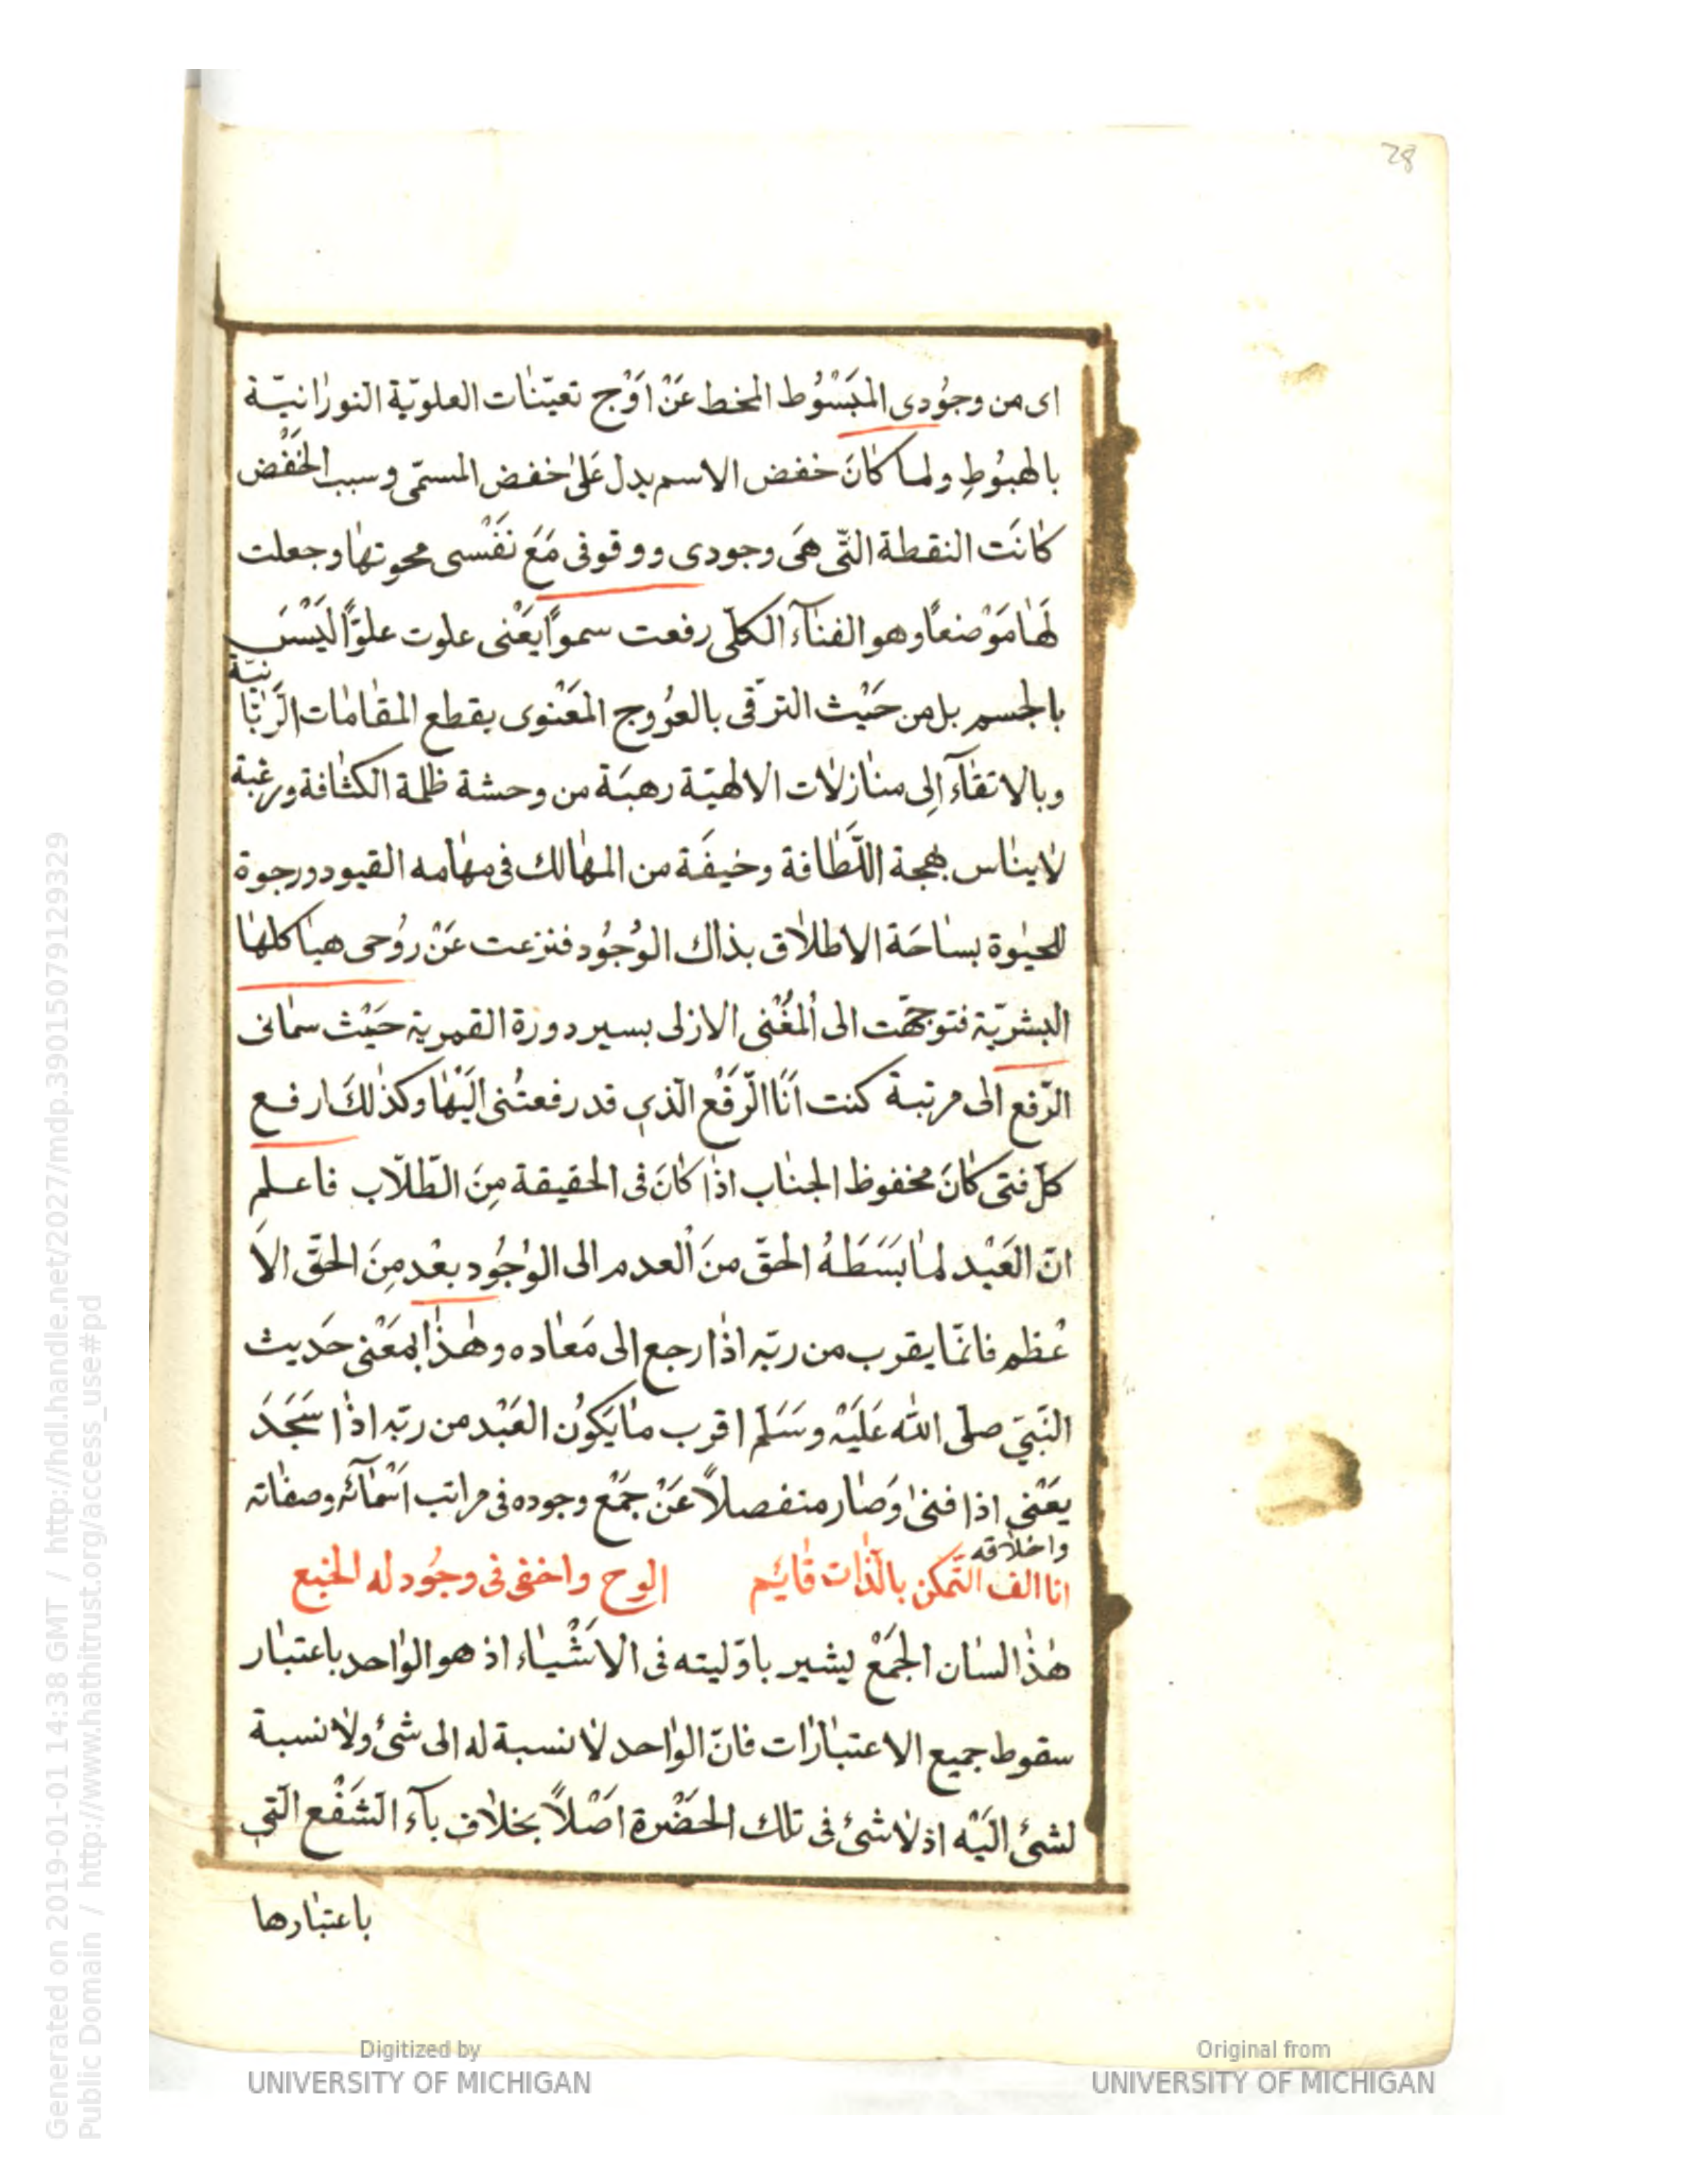 28
اى من وجُودى المَبْسُوُط المخط عَنْ اَوْج تعيّنات العلويّة النورانيّة
بالهبُوُطِ ولما كانَ خفض الاسم يدل عَلىٰ خفض المسمّى وسبب الخَفْض
كانَت النقطة التّى هىَ وجودى ووقوفى مَعَ نَفْسى محوتها وجعلت
لهَا مَوْضعًا وهو الفنآء الكلّى رفعت سموًا يَعْنى علوت علوًّا ليَسْسَ
بالجسم بل من حَيْث الترقّى بالعرُوج المَعْنوى يقطع المقامات الرَّبّا
نيّة
وبالاتقآء اِلى منازلات الالهيّة رهبَة من وحشة ظلمة الكثافة ورغبة
لايناس بهجة اللَّطافة وخيفَة من المهالك فى مهامه القيود ورجوة
للحيوة بسَاحَة الاطلاق بذاك الوُجُود فنزعت عَنْ روُحى هياكلها
البشريّة فتوجّهت الى اْلمغْنى الازلى بسير دورة القمرية حَيْث سمانى
الرّفع الى مرتبة كنت اَنَا الّرفَع الّذي قد رفعتُنى اليْها وكذلكَ ارفع
كلّ فتى كانَ مخفوظ الجناب اذا كانَ فى الحقيقة مِنَ الطّلاّب فاعلم
انّ العَبْد لما بَسَطَهُ الحقّ منَ اْلعدم الى الوُجُود بعْد مِنَ الحقّ الاَ
عْظم فانمّا يقرب من ربّه اذا رجع الى مَعاده وهذا المعَنْى حَديث
النّبيّ صلّى الله عَليَهْ وسَلّم اقرب ما يَكوُن العَبْد من ربّه اذا سَجَدَ
يعَنْى اذا فنىٰ وَصار منفصلاً عَنْ جَمْع وجوده فى مراتب اَسْمآئه وصفاته
واخلاقه
انا الف التّمكن بالذّات قائم الوح واخفى فى وجُود له الجمع
هذا لسان الجمَعْ يشير باوّليته فى الاَشْياء اذ هو الواحد باعتبار
سقوط جميع الاعتبارات فانّ الواحد لا نسبة له الى شئ ولا نسبة
لشئ اليَهْ اذ لا شئ فى تلك الحضَرْة اصَلاً بخلاف بآء الشَفْع الّتي
باعتبارها
Digitized by
UNIVERSITY OF MICHIGAN
Original from
UNIVERSITY OF MICHIGAN
Generated on 2019-01-01 14:38 GMT / http://hdl.handle.net/2027/mdp.39015079129329
Public Domain / http://www.hathitrust.org/access_use#pd